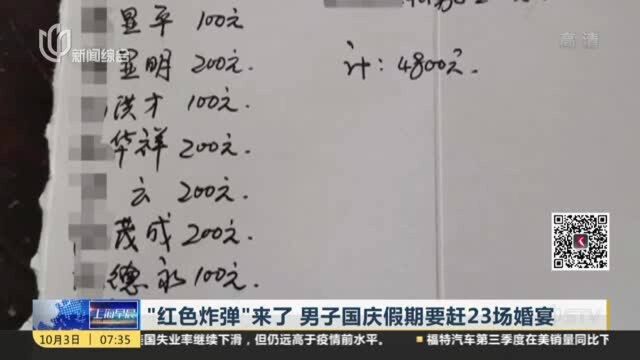 新闻综合
高清
显平 100元
显明 200元.
计:4800元.
洪才 100元
华祥 200元.
云 200元.
茂成 200元.
德永 100元.
上海早晨
"红色炸弹"来了 男子国庆假期要赶23场婚宴
10月3日 07:35 国失业率继续下滑,但仍远高于疫情前水平。 福特汽车第三季度在美销量同比下